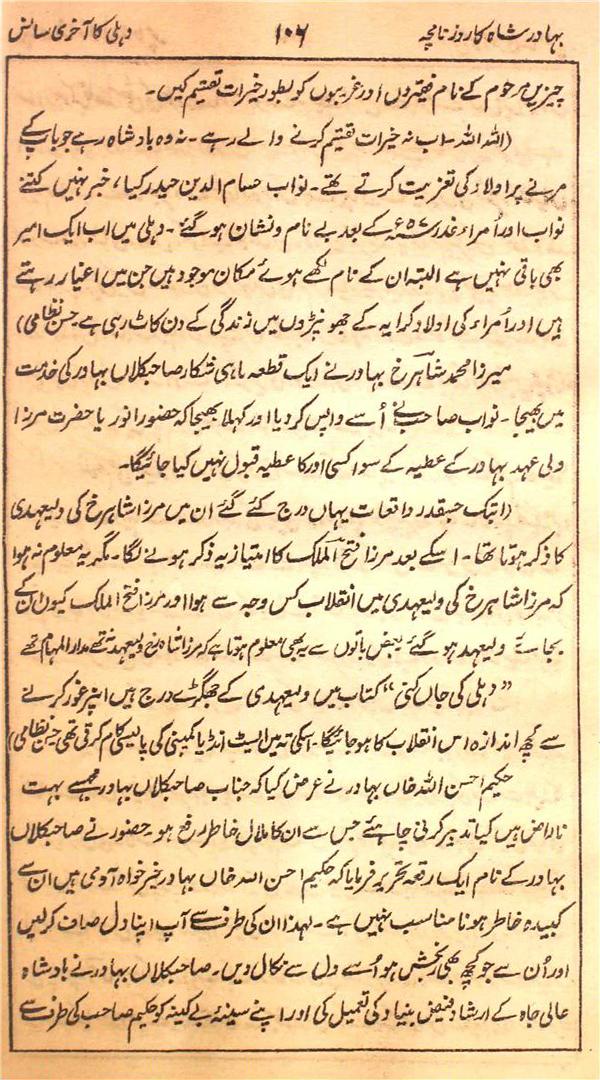 بہادر شاہ کا روزنامچہ ۱۰۶ دہلی کا آخری سانس
چیزیں مرحوم کے نام فقیروں اور غریبوں کو بطور خیرات تقسیم کیں۔
(اللہ اللہ۔ اب نہ خیرات تقسیم کرنے والے رہے۔ نہ وہ بادشاہ رہے جو باپ کے
مرنے پر اولاد کی تعزیت کرتے تھے۔ نواب حسام الدین حیدر کیا، خبر نہیں کتنے
نواب اور اُمراء غدر ۵۷ء کے بعد بے نام و نشان ہو گئے۔ دہلی میں اب ایک امیر
بھی باقی نہیں ہے البتہ ان کے نام لکھے ہوئے مکان موجود ہیں جن میں اغیار رہتے
ہیں اور اُمراء کی اولاد کرایہ کے جھونپڑوں میں زندگی کے دن کاٹ رہی ہے۔ حسن نظامی)
میرزا محمد شاہرخ بہادر نے ایک قطعہ ماہی شکار صاحب کلاں بہادر کی خدمت
میں بھیجا۔ نواب صاحب نے اُسے واپس کر دیا اور کہلا بھیجا کہ حضور انور یا حضرت مرزا
ولی عہد بہادر کے عطیہ کے سوا کسی اور کا عطیہ قبول نہیں کیا جائیگا۔
(ابتک جسقدر واقعات یہاں درج کئے گئے ان میں مرزا شاہرخ کی ولیعہدی
کا ذکر ہوتا تھا۔ اسکے بعد مرزا فتح الملک کا امتیازیہ ذکر ہونے لگا۔ مگر یہ معلوم نہ ہوا
کہ مرزا شاہرخ کی ولیعہدی میں انقلاب کس وجہ سے ہوا اور مرزا فتح الملک کیوں ان کے
بجائے ولیعہد ہو گئے بعض باتوں سے یہ بھی معلوم ہوتا ہے کہ مرزا شاہرخ ولیعہد نہ تھے مدارالمہام تھے
”دہلی کی جاں کنی“ کتاب میں ولیعہدی کے جھگڑے درج ہیں انپر غور کرنے
سے کچھ اندازہ اس انقلاب کا ہو جائیگا۔ اسکی تہ میں ایسٹ انڈیا کمپنی کی پالیسی کام کرتی تھی حسن نظامی)
حکیم احسن اللہ خاں بہادر نے عرض کیا کہ جناب صاحب کلاں بہادر مجھسے بہت
ناراض ہیں کیا تدبیر کرنی چاہئے جس سے ان کا ملال خاطر رفع ہو۔ حضور نے صاحب کلاں
بہادر کے نام ایک رقعہ تحریر فرمایا کہ حکیم احسن اللہ خاں بہادر خیر خواہ آدمی ہیں ان سے
کبیدہ خاطر ہونا مناسب نہیں ہے۔ لہذا ان کی طرف سے آپ اپنا دل صاف کر لیں
اور اُن سے جو کچھ بھی رنجش ہو اُسے دل سے نکال دیں۔ صاحب کلاں بہادر نے بادشاہ
عالی جاہ کے ارشاد فیض بنیاد کی تعمیل کی اور اپنے سینۂ بے کینہ کو حکیم صاحب کی طرف سے